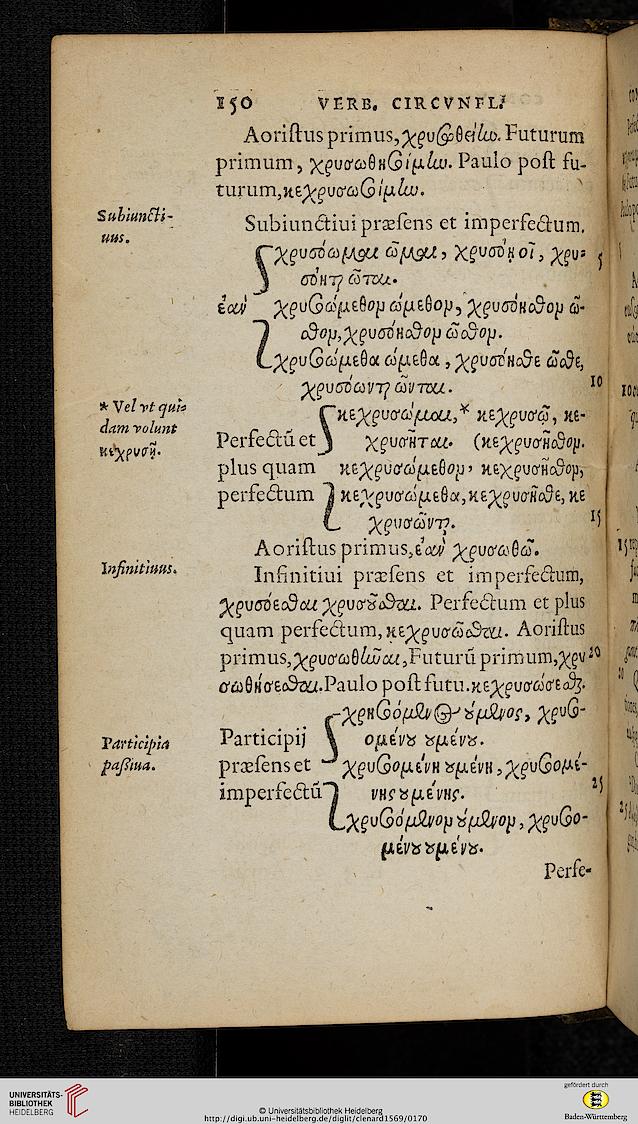 150 VERB. CIRCVNFL.
Aoriſtus primus, χρυσωθείλω. Futurum
primum, χρυσωθησίμλω. Paulo poſt fu-
turum, κεχρυσωσίμλω.
Subiuncti-
uus.
Subiunctiui præſens et imperfectum.
χρυσόωμαι ῶμαι, χρυσόῃ οῖ, χρυ- 5
σόηται ῶται.
ἐὰν χρυσωώμεθον ώμεθον, χρυσόησθον ῶ-
σθον, χρυσόησθον ῶσθον.
χρυσωώμεθα ώμεθα, χρυσόησθε ῶσθε,
χρυσόωνται ῶνται. 10
* Vel vt qui-
dam volunt
κεχρυσῇ.
κεχρυσώμαι,* κεχρυσῷ, κε-
Perfectū et χρυσῆται. (κεχρυσῆσθον.
plus quam κεχρυσώμεθον, κεχρυσῆσθον,
perfectum κεχρυσώμεθα, κεχρυσῆσθε, κε
χρυσῶνται. 15
Aoriſtus primus, ἐὰν χρυσωθῶ.
Infinitiuus.
Infinitiui præſens et imperfectum,
χρυσόεσθαι χρυσοῦσθαι. Perfectum et plus
quam perfectum, κεχρυσῶσθαι. Aoriſtus
primus, χρυσωθῆναι, Futurū primum, χρυ 20
σωθήσεσθαι. Paulo poſt futu. κεχρυσώσεσθαι.
Participia
paſsiua.
χρησόμενος ούμενος, χρυσ-
Participij ομένου ουμένου.
præſens et χρυσομένη ουμένη, χρυσομέ-
imperfectū νης ουμένης. 25
χρυσόμενον ούμενον, χρυσο-
μένου ουμένου.
Perfe-
UNIVERSITÄTS-
BIBLIOTHEK
HEIDELBERG
© Universitätsbibliothek Heidelberg
http://digi.ub.uni-heidelberg.de/diglit/clenard1569/0170
gefördert durch
Baden-Württemberg